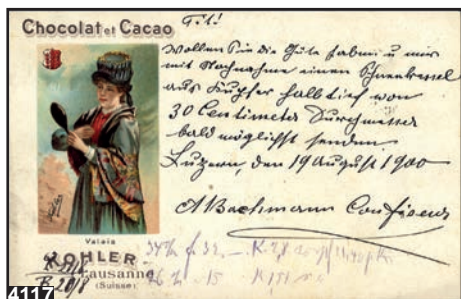 Chocolat et Cacao
T. t.!
Wollen Sie die Güte haben u mir
mit Nachnahme einen Schneekessel
aus Kupfer halbtief von
30 Centimeter Durchmesser
bald möglichst senden.
Luzern, den 19 August 1900
A Bachmann Confiseur
Valais
KOHLER
Lausanne
(Suisse)
4117